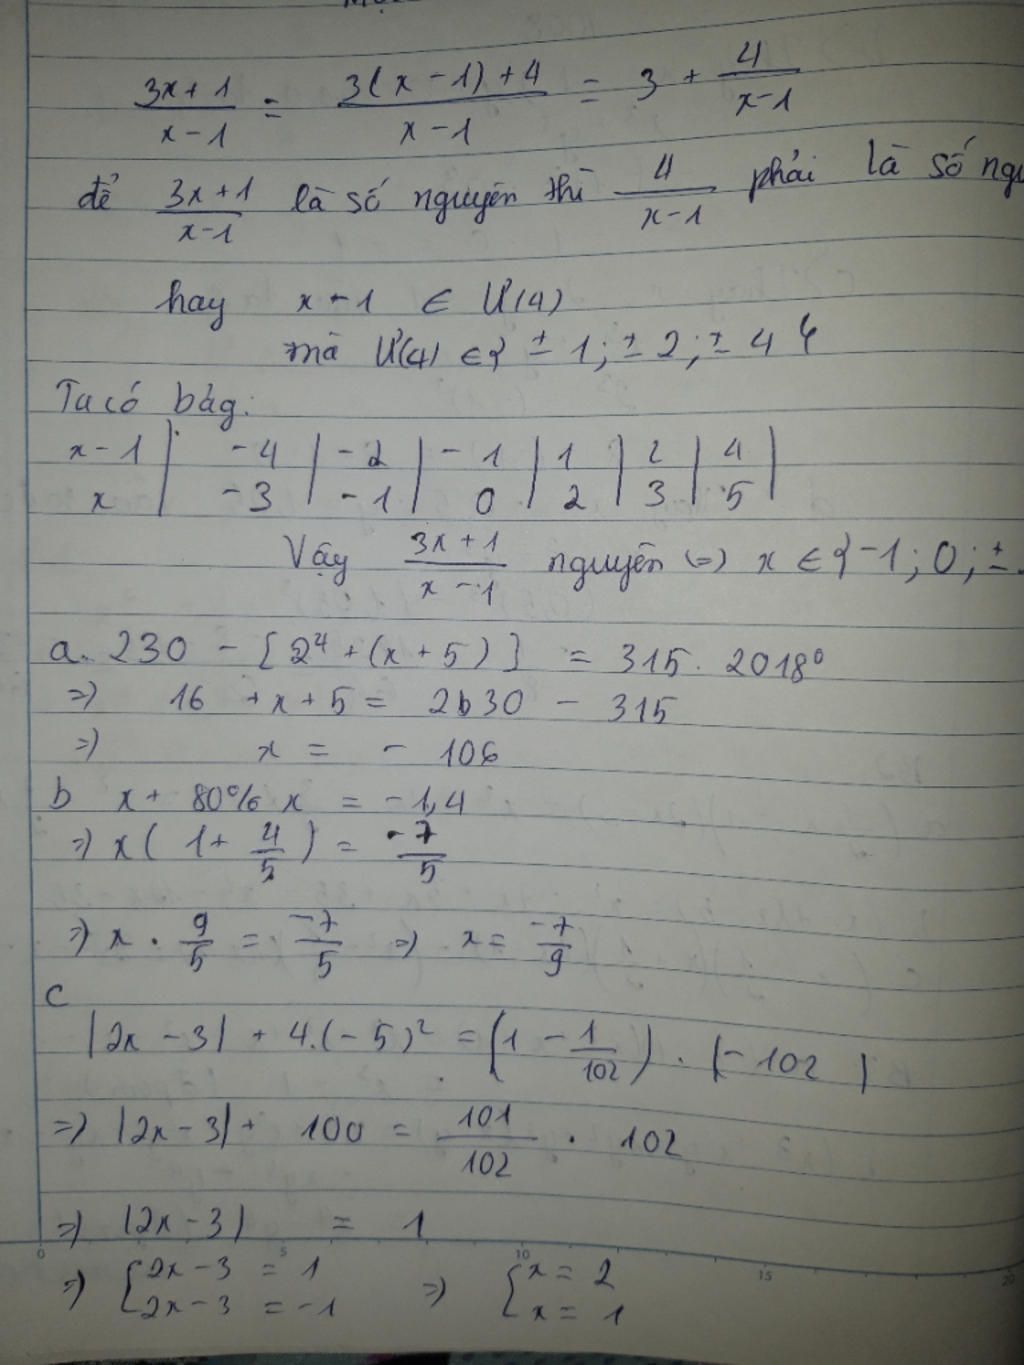 3x+1/x-1 = 3(x-1)+4/x-1 = 3 + 4/x-1
để 3x+1/x-1 là số nguyên thì 4/x-1 phải là số
hay x-1 ∈ Ư(4)
mà Ư(4) ∈ { ±1; ±2; ±4 }
Ta có bảg:
x-1 | -4 | -2 | -1 | 1 | 2 | 4 |
x | -3 | -1 | 0 | 2 | 3 | 5 |
Vậy 3x+1/x-1 nguyên (=) x ∈ { -1; 0; ±
a. 230 - [2⁴ + (x+5)] = 315. 2018⁰
=) 16 + x + 5 = 230 - 315
=) x = - 106
b x + 80% x = -1,4
=) x( 1 + 4/5 ) = -7/5
=) x . 9/5 = -7/5 =) x = -7/9
c
|2x - 3| + 4.(-5)² = (1 - 1/102) . |-102|
=) |2x-3| + 100 = 101/102 . 102
=) |2x-3| = 1
=) { 2x-3 = 1 =) { x = 2
2x-3 = -1 x = 1
0 5 10 15 20